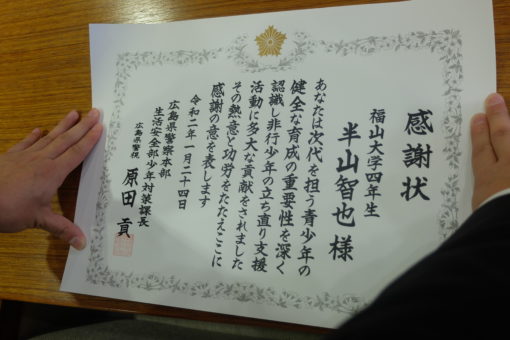 感謝状
福山大学四年生
半山智也様
あなたは次代を担う青少年の
健全な育成の重要性を深く
認識し非行少年の立ち直り支援
活動に多大な貢献をされました
その熱意と功労をたたえここに
感謝の意を表します
令和二年一月二十四日
広島県警察本部
生活安全部少年対策課長
広島県警視
原田貢